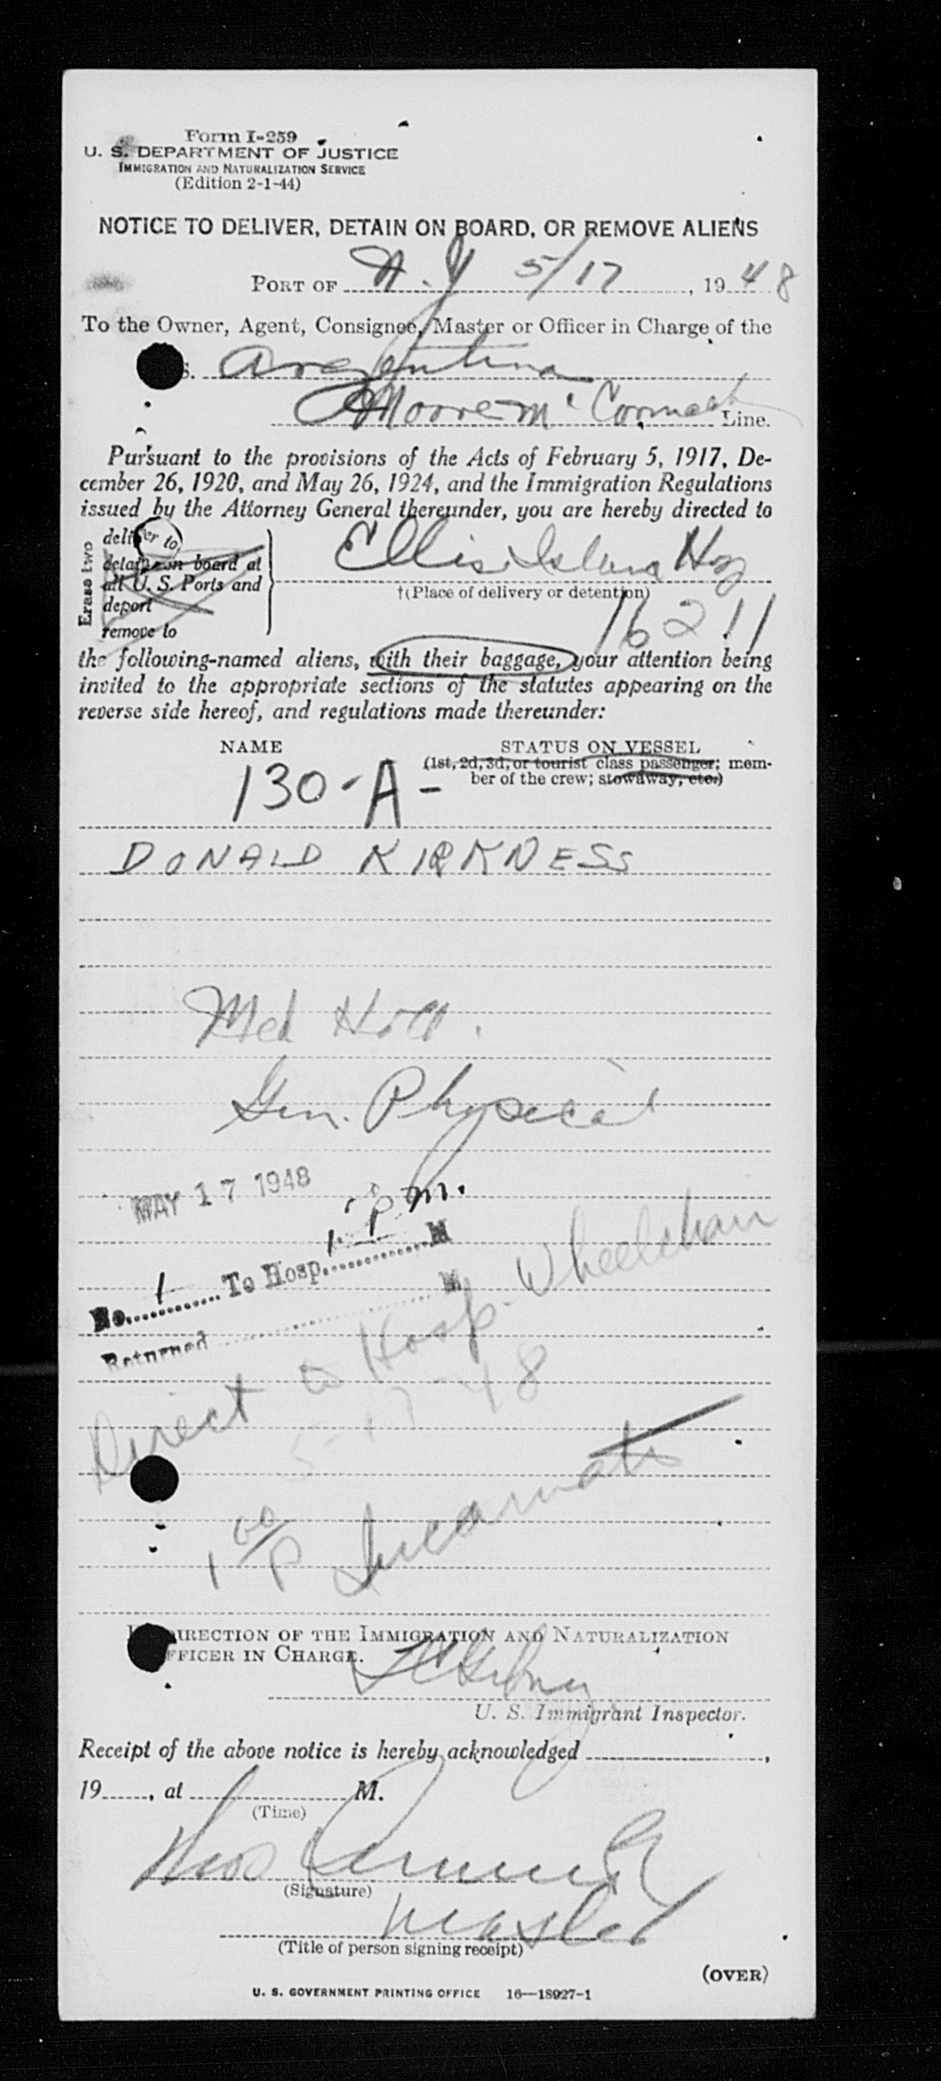 Form I-259
U. S. DEPARTMENT OF JUSTICE
IMMIGRATION AND NATURALIZATION SERVICE
(Edition 2-1-44)
NOTICE TO DELIVER, DETAIN ON BOARD, OR REMOVE ALIENS
PORT OF N.Y 5/17, 1948
To the Owner, Agent, Consignee, Master or Officer in Charge of the
S. Argentina
Moore McCormack Line.
Pursuant to the provisions of the Acts of February 5, 1917, De-
cember 26, 1920, and May 26, 1924, and the Immigration Regulations
issued by the Attorney General thereunder, you are hereby directed to
Erase two
deliver to
detain on board at
all U. S. Ports and
deport
remove to
Ellis Island
†(Place of delivery or detention)
16211
the following-named aliens, with their baggage, your attention being
invited to the appropriate sections of the statutes appearing on the
reverse side hereof, and regulations made thereunder:
NAME STATUS ON VESSEL
(1st, 2d, 3d, or tourist class passenger; mem-
ber of the crew; stowaway, etc.)
130-A-
DONALD KIRKNESS
Med Hold.
Gen. Physical
MAY 17 1948
No. 1 To Hosp. 1 P m. M
Returned M
Direct to Hosp. Wheelchair
5-17-48
1 00/P
BY DIRECTION OF THE IMMIGRATION AND NATURALIZATION
OFFICER IN CHARGE.
U. S. Immigrant Inspector.
Receipt of the above notice is hereby acknowledged ,
19 , at M.
(Time)
Thos
(Signature)
Master
(Title of person signing receipt)
(OVER)
U. S. GOVERNMENT PRINTING OFFICE 16—18927-1